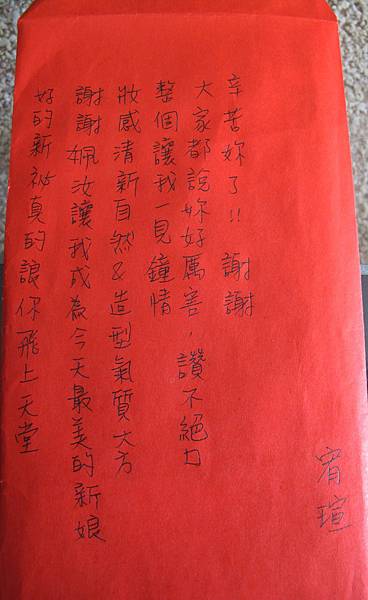 好的新祕真的讓你飛上天堂
謝謝姵汝讓我成為今天最美的新娘
妝感清新自然&造型氣質大方
整個讓我一見鐘情
大家都說妳好厲害，讚不絕口
辛苦妳了!! 謝謝
宥瑄